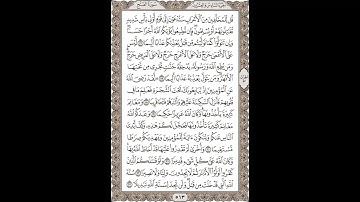 الجزء السادس والعشرون
سورة الفتح
قُل لِّلْمُخَلَّفِينَ مِنَ الْأَعْرَابِ سَتُدْعَوْنَ إِلَىٰ قَوْمٍ أُولِي بَأْسٍ شَدِيدٍ
تُقَاتِلُونَهُمْ أَوْ يُسْلِمُونَ فَإِن تُطِيعُوا يُؤْتِكُمُ اللَّهُ أَجْرًا حَسَنًا
وَإِن تَتَوَلَّوْا كَمَا تَوَلَّيْتُم مِّن قَبْلُ يُعَذِّبْكُمْ عَذَابًا أَلِيمًا ١٦ لَّيْسَ
عَلَى الْأَعْمَىٰ حَرَجٌ وَلَا عَلَى الْأَعْرَجِ حَرَجٌ وَلَا عَلَى الْمَرِيضِ حَرَجٌ
وَمَن يُطِعِ اللَّهَ وَرَسُولَهُ يُدْخِلْهُ جَنَّاتٍ تَجْرِي مِن تَحْتِهَا
الْأَنْهَارُ وَمَن يَتَوَلَّ يُعَذِّبْهُ عَذَابًا أَلِيمًا ١٧ ۞ لَّقَدْ رَضِيَ اللَّهُ
عَنِ الْمُؤْمِنِينَ إِذْ يُبَايِعُونَكَ تَحْتَ الشَّجَرَةِ فَعَلِمَ مَا فِي
قُلُوبِهِمْ فَأَنزَلَ السَّكِينَةَ عَلَيْهِمْ وَأَثَابَهُمْ فَتْحًا قَرِيبًا ١٨ وَمَغَانِمَ
كَثِيرَةً يَأْخُذُونَهَا وَكَانَ اللَّهُ عَزِيزًا حَكِيمًا ١٩ وَعَدَكُمُ اللَّهُ
مَغَانِمَ كَثِيرَةً تَأْخُذُونَهَا فَعَجَّلَ لَكُمْ هَٰذِهِ وَكَفَّ أَيْدِيَ
النَّاسِ عَنكُمْ وَلِتَكُونَ آيَةً لِّلْمُؤْمِنِينَ وَيَهْدِيَكُمْ صِرَاطًا
مُّسْتَقِيمًا ٢٠ وَأُخْرَىٰ لَمْ تَقْدِرُوا عَلَيْهَا قَدْ أَحَاطَ اللَّهُ بِهَا
وَكَانَ اللَّهُ عَلَىٰ كُلِّ شَيْءٍ قَدِيرًا ٢١ وَلَوْ قَاتَلَكُمُ الَّذِينَ
كَفَرُوا لَوَلَّوُا الْأَدْبَارَ ثُمَّ لَا يَجِدُونَ وَلِيًّا وَلَا نَصِيرًا ٢٢ سُنَّةَ
اللَّهِ الَّتِي قَدْ خَلَتْ مِن قَبْلُ وَلَن تَجِدَ لِسُنَّةِ اللَّهِ تَبْدِيلًا ٢٣
٥١٣